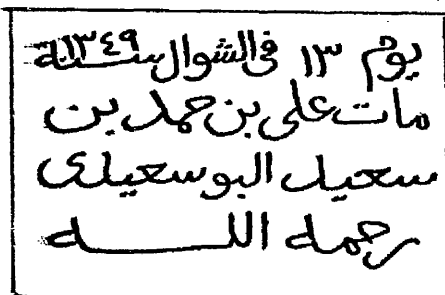 يوم ١٣ فى الشوال سنة ١٣٤٩
مات على بن حمد بن
سعيد البوسعيدى
رحمه الله